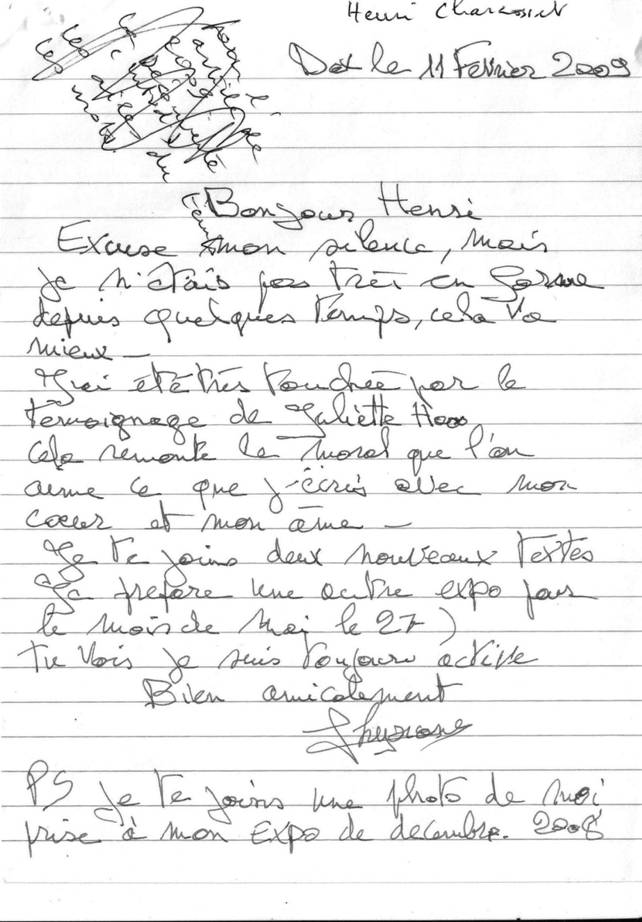 Henri
le 11 Fevrier 2009
Bonjour Henri
Excuse mon silence, mais
je n'étais pas très en forme
depuis quelques temps, cela va
mieux -
J'ai été très touchée par le
témoignage de Juliette
cela remonte le moral que l'on
aime ce que j'écris avec mon
coeur et mon âme -
Je te joins deux nouveaux textes
Je prépare une autre expo pour
le mois de Mai le 27)
tu vois je suis toujours active
Bien amicalement
PS Je te joins une photo de moi
prise à mon Expo de decembre. 2008